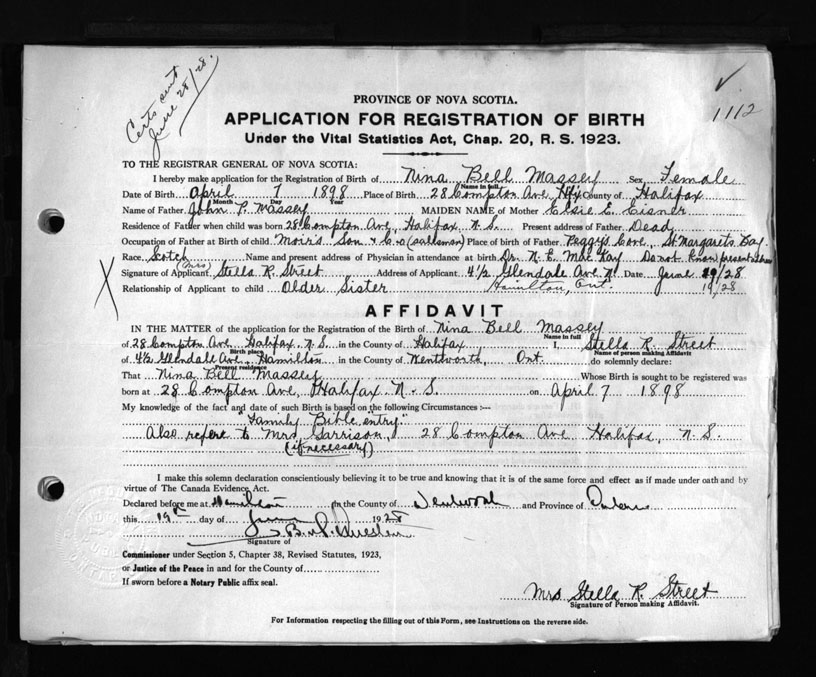 Certs sent
June 28/28.
1112
PROVINCE OF NOVA SCOTIA.
APPLICATION FOR REGISTRATION OF BIRTH
Under the Vital Statistics Act, Chap. 20, R. S. 1923.
TO THE REGISTRAR GENERAL OF NOVA SCOTIA:
I hereby make application for the Registration of Birth of Nina Bell Massey Sex Female
Name in full
Date of Birth April 7 1898 Place of Birth 28 Compton Ave Hfx County of Halifax
Month Day Year
Name of Father John P. Massey MAIDEN NAME of Mother Elsie E. Eisner
Residence of Father when child was born 28 Compton Ave, Halifax, N. S. Present address of Father Dead
Occupation of Father at Birth of child Moirs Son & Co (salesman) Place of birth of Father Peggys Cove, St Margarets Bay.
Race Scotch Name and present address of Physician in attendance at birth Dr. N. E. MacKay Do not know present address
Signature of Applicant (Mrs) Stella R. Street Address of Applicant 4½ Glendale Ave N. Date June 19/28
Relationship of Applicant to child Older Sister Hamilton, Ont. 1928
AFFIDAVIT
IN THE MATTER of the application for the Registration of the Birth of Nina Bell Massey
Name in full
of 28 Compton Ave. Halifax N. S. in the County of Halifax I, Stella R. Street
Birth place Name of person making Affidavit
of 4½ Glendale Ave, Hamilton in the County of Wentworth, Ont. do solemnly declare:
Present residence
That Nina Bell Massey Whose Birth is sought to be registered was
born at 28 Compton Ave, Halifax N. S. on April 7 1898
My knowledge of the fact and date of such Birth is based on the following Circumstances :—
Family Bible entry.
Also refere to Mrs Garrison, 28 Compton Ave Halifax, N. S.
(if necessary)
I make this solemn declaration conscientiously believing it to be true and knowing that it is of the same force and effect as if made under oath and by
virtue of The Canada Evidence Act.
Declared before me at Hamilton in the County of Wentworth and Province of Ontario
this 19th day of June 1928
Signature of
Commissioner under Section 5, Chapter 38, Revised Statutes, 1923,
or Justice of the Peace in and for the County of
If sworn before a Notary Public affix seal.
Mrs Stella R. Street
Signature of Person making Affidavit.
For Information respecting the filling out of this Form, see Instructions on the reverse side.